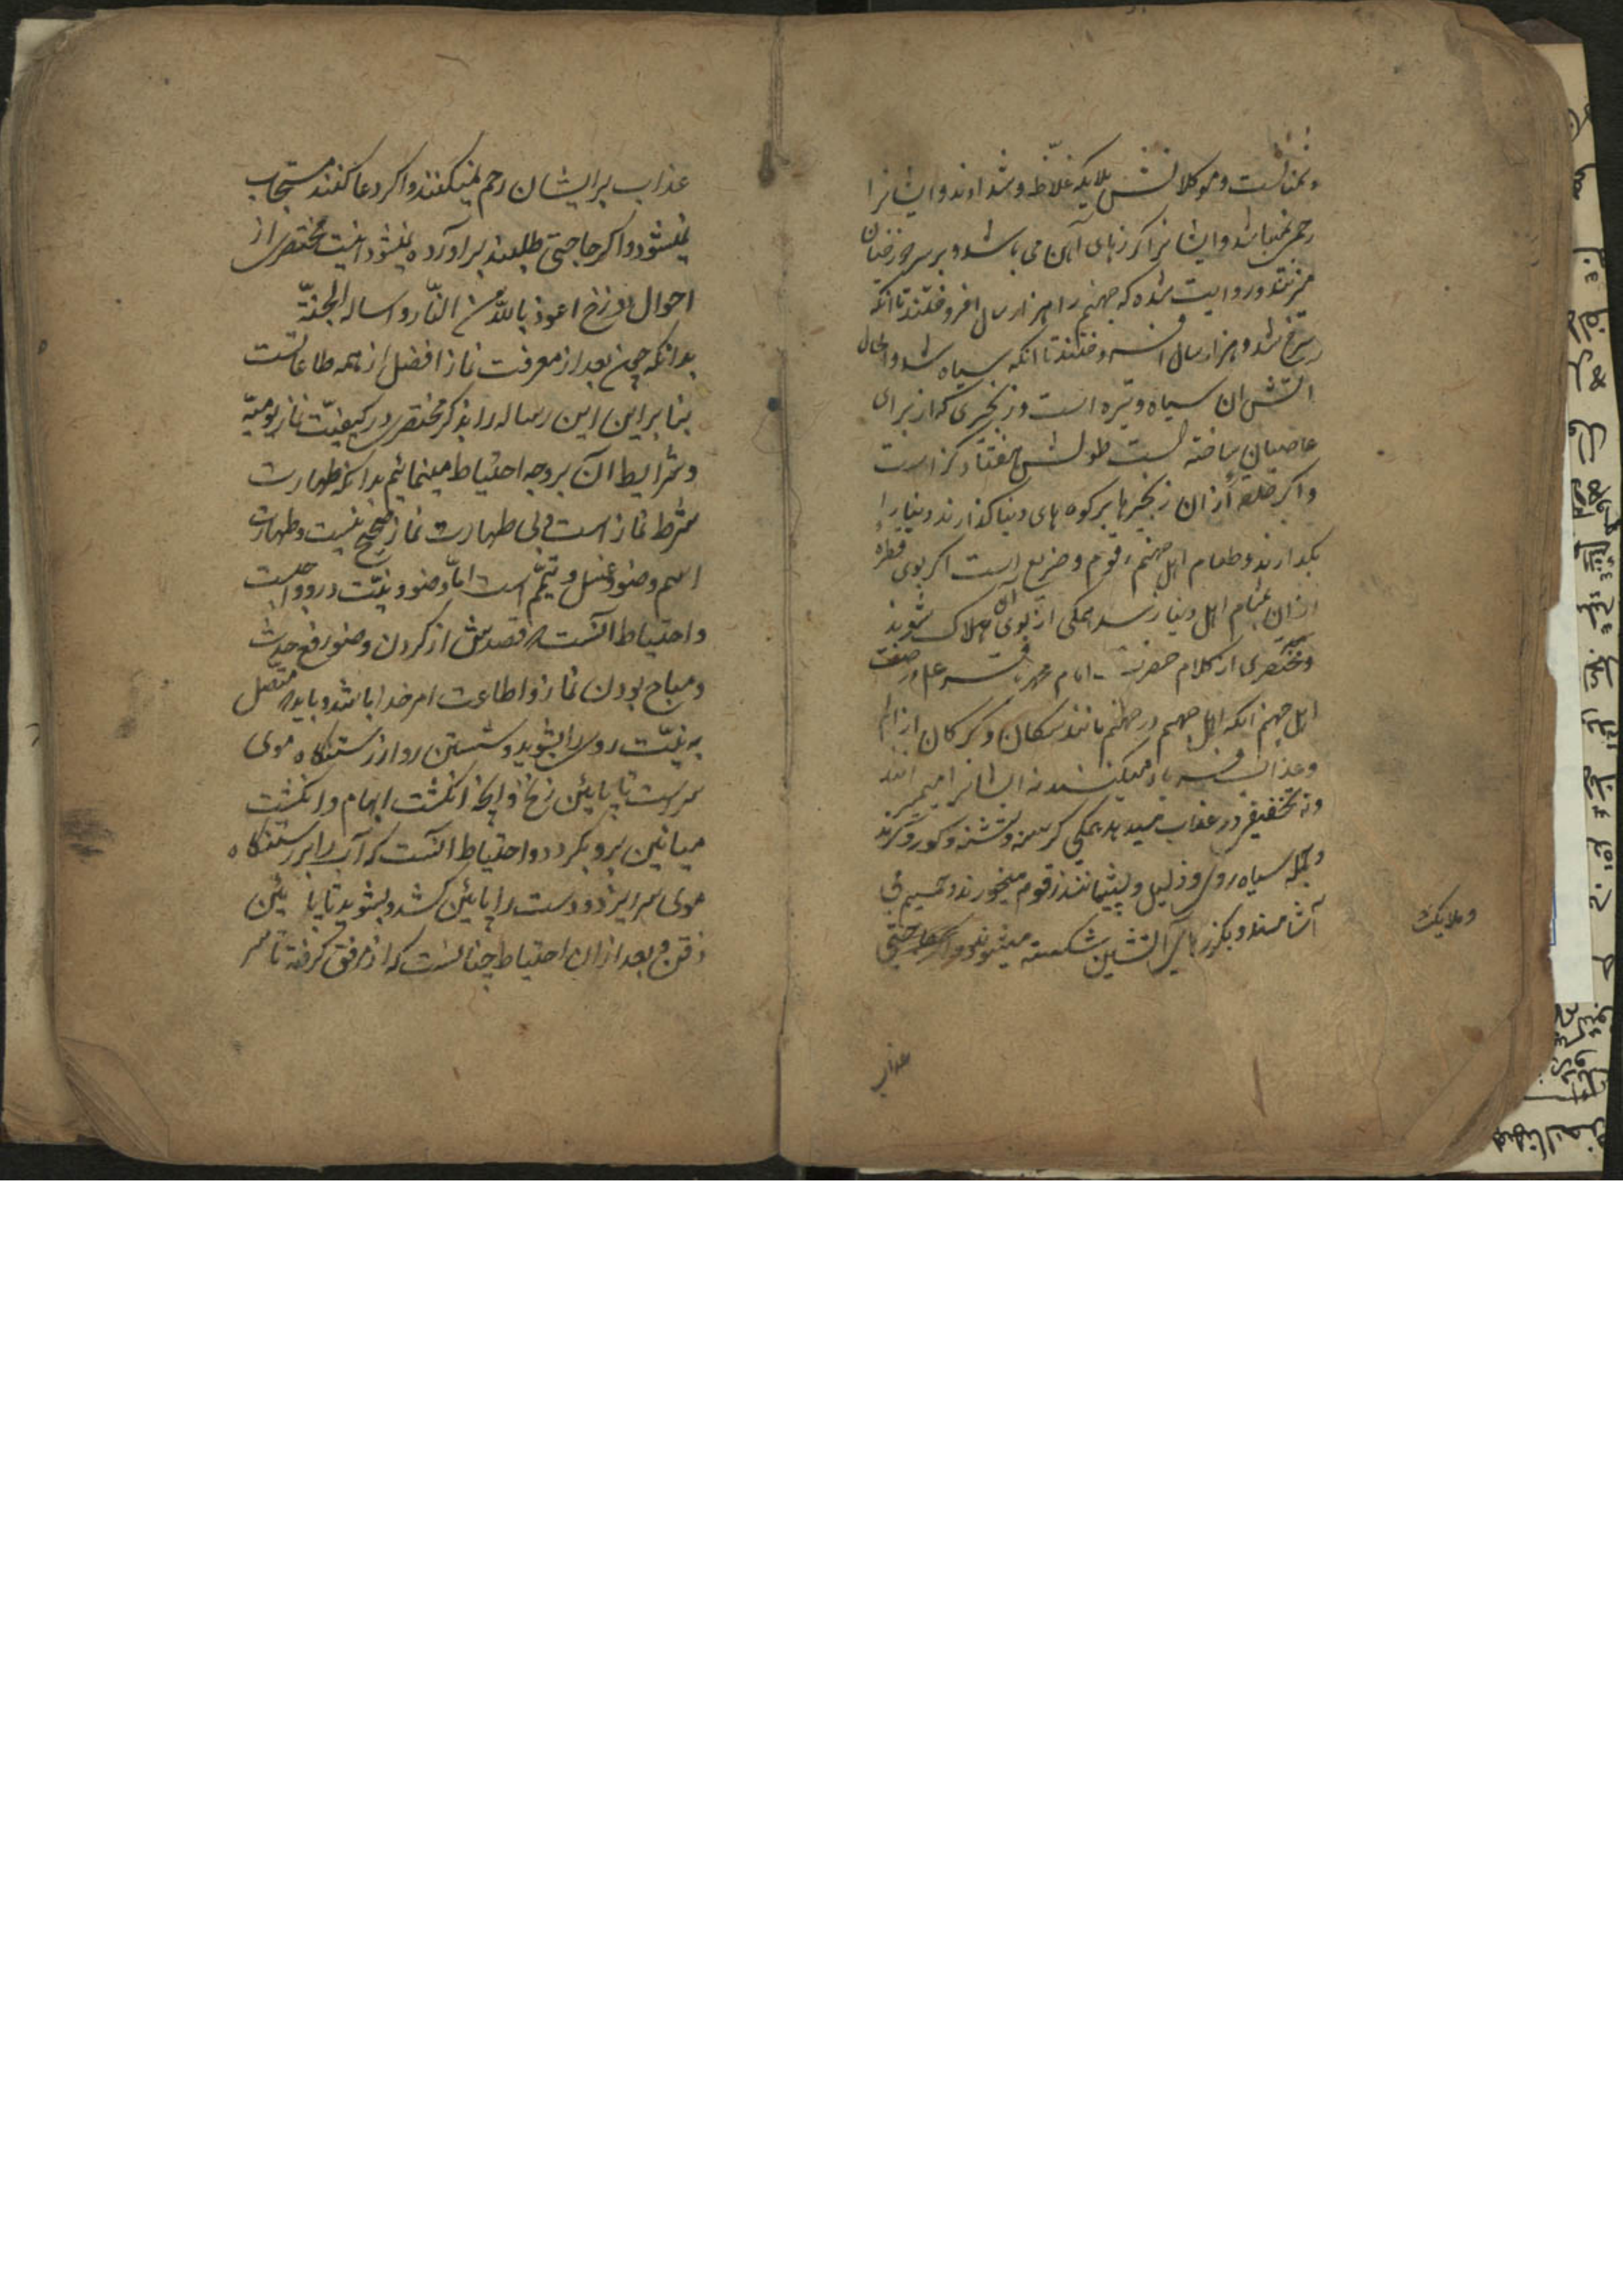 و نمناکست و موکلانش ملایکه غلاظ و شدادند و ایشانرا
رحم نمیباشد و ایشانرا گرزهای آهن می باشد و بر سر دوزخیان
میزنند و روایت شده که جهنم را هزار سال افروختند تا انکه
سرخ شد و هزار سال افروختند تا انکه سیاه شد و الحال
اتش ان سیاه و تیره است و زنجیری که از برای
عاصیان ساخته است طولش هفتاد گز است
و اگر حلقهٔ از ان زنجیرها بر کوه های دنیا گذارند دنیا را
بگدازند و طعام اهل جهنم زقوم و ضریع است اگر بوی قطرهٔ
از ان بتمام اهل دنیا رسد همکی از بوی آن هلاک شوند
و مختصری از کلام حضرت امام محمد باقر علیه در صفت
اهل جهنم انکه اهل جهنم در جهنم مانند سکان و کرکان از الم
و عذاب فریاد میکنند نه ایشانرا میمیرانند
و نه تخفیفی در عذاب میدهد همکی کرسنه و تشنه و کور و کرند
و همه سیاه روی و ذلیل و پشیمانند زقوم میخورند و حمیم می
آشامند و بگرزهای آتشین شکسته میشوند
و ملایک
عذاب
عذاب بر ایشان رحم نمیکنند و اکر دعا کنند مستجاب
نمیشود و اکر حاجتی طلبند براورده نمیشود اینست مختصری از
احوال دوزخ اعوذ بالله من النّار و اساله الجنّة
بدانکه چون بعد از معرفت نماز افضل از همه طاعاتست
بنا براین این رساله را بذکر مختصری در کیفیّت نماز یومیّه
و شرایط آن بر وجه احتیاط مینمائیم بدانکه طهارت
شرط نماز است و بی طهارت نماز صحیح نیست و طهارت
اسم وضو و غسل و تیمّم است امّا وضو و نیّت در و واجبست
و احتیاط آنست که قصدش از کردن وضو رفع حدث
و مباح بودن نماز و اطاعت امر خدا باشد و باید که متصل
به نیّت روی را بشوید و شستن رو از رستنکاه موی
سرست تا پایئن زنخ و انچه انکشت ابهام و انکشت
میانین برو بکردد و احتیاط آنست که آب را بر رستنکاه
موی سر ریزد و دست را پایئن کشد و بشوید تا پایئن
ذقن و بعد از ان احتیاط چنانست که از مرفق کرفته تا سر